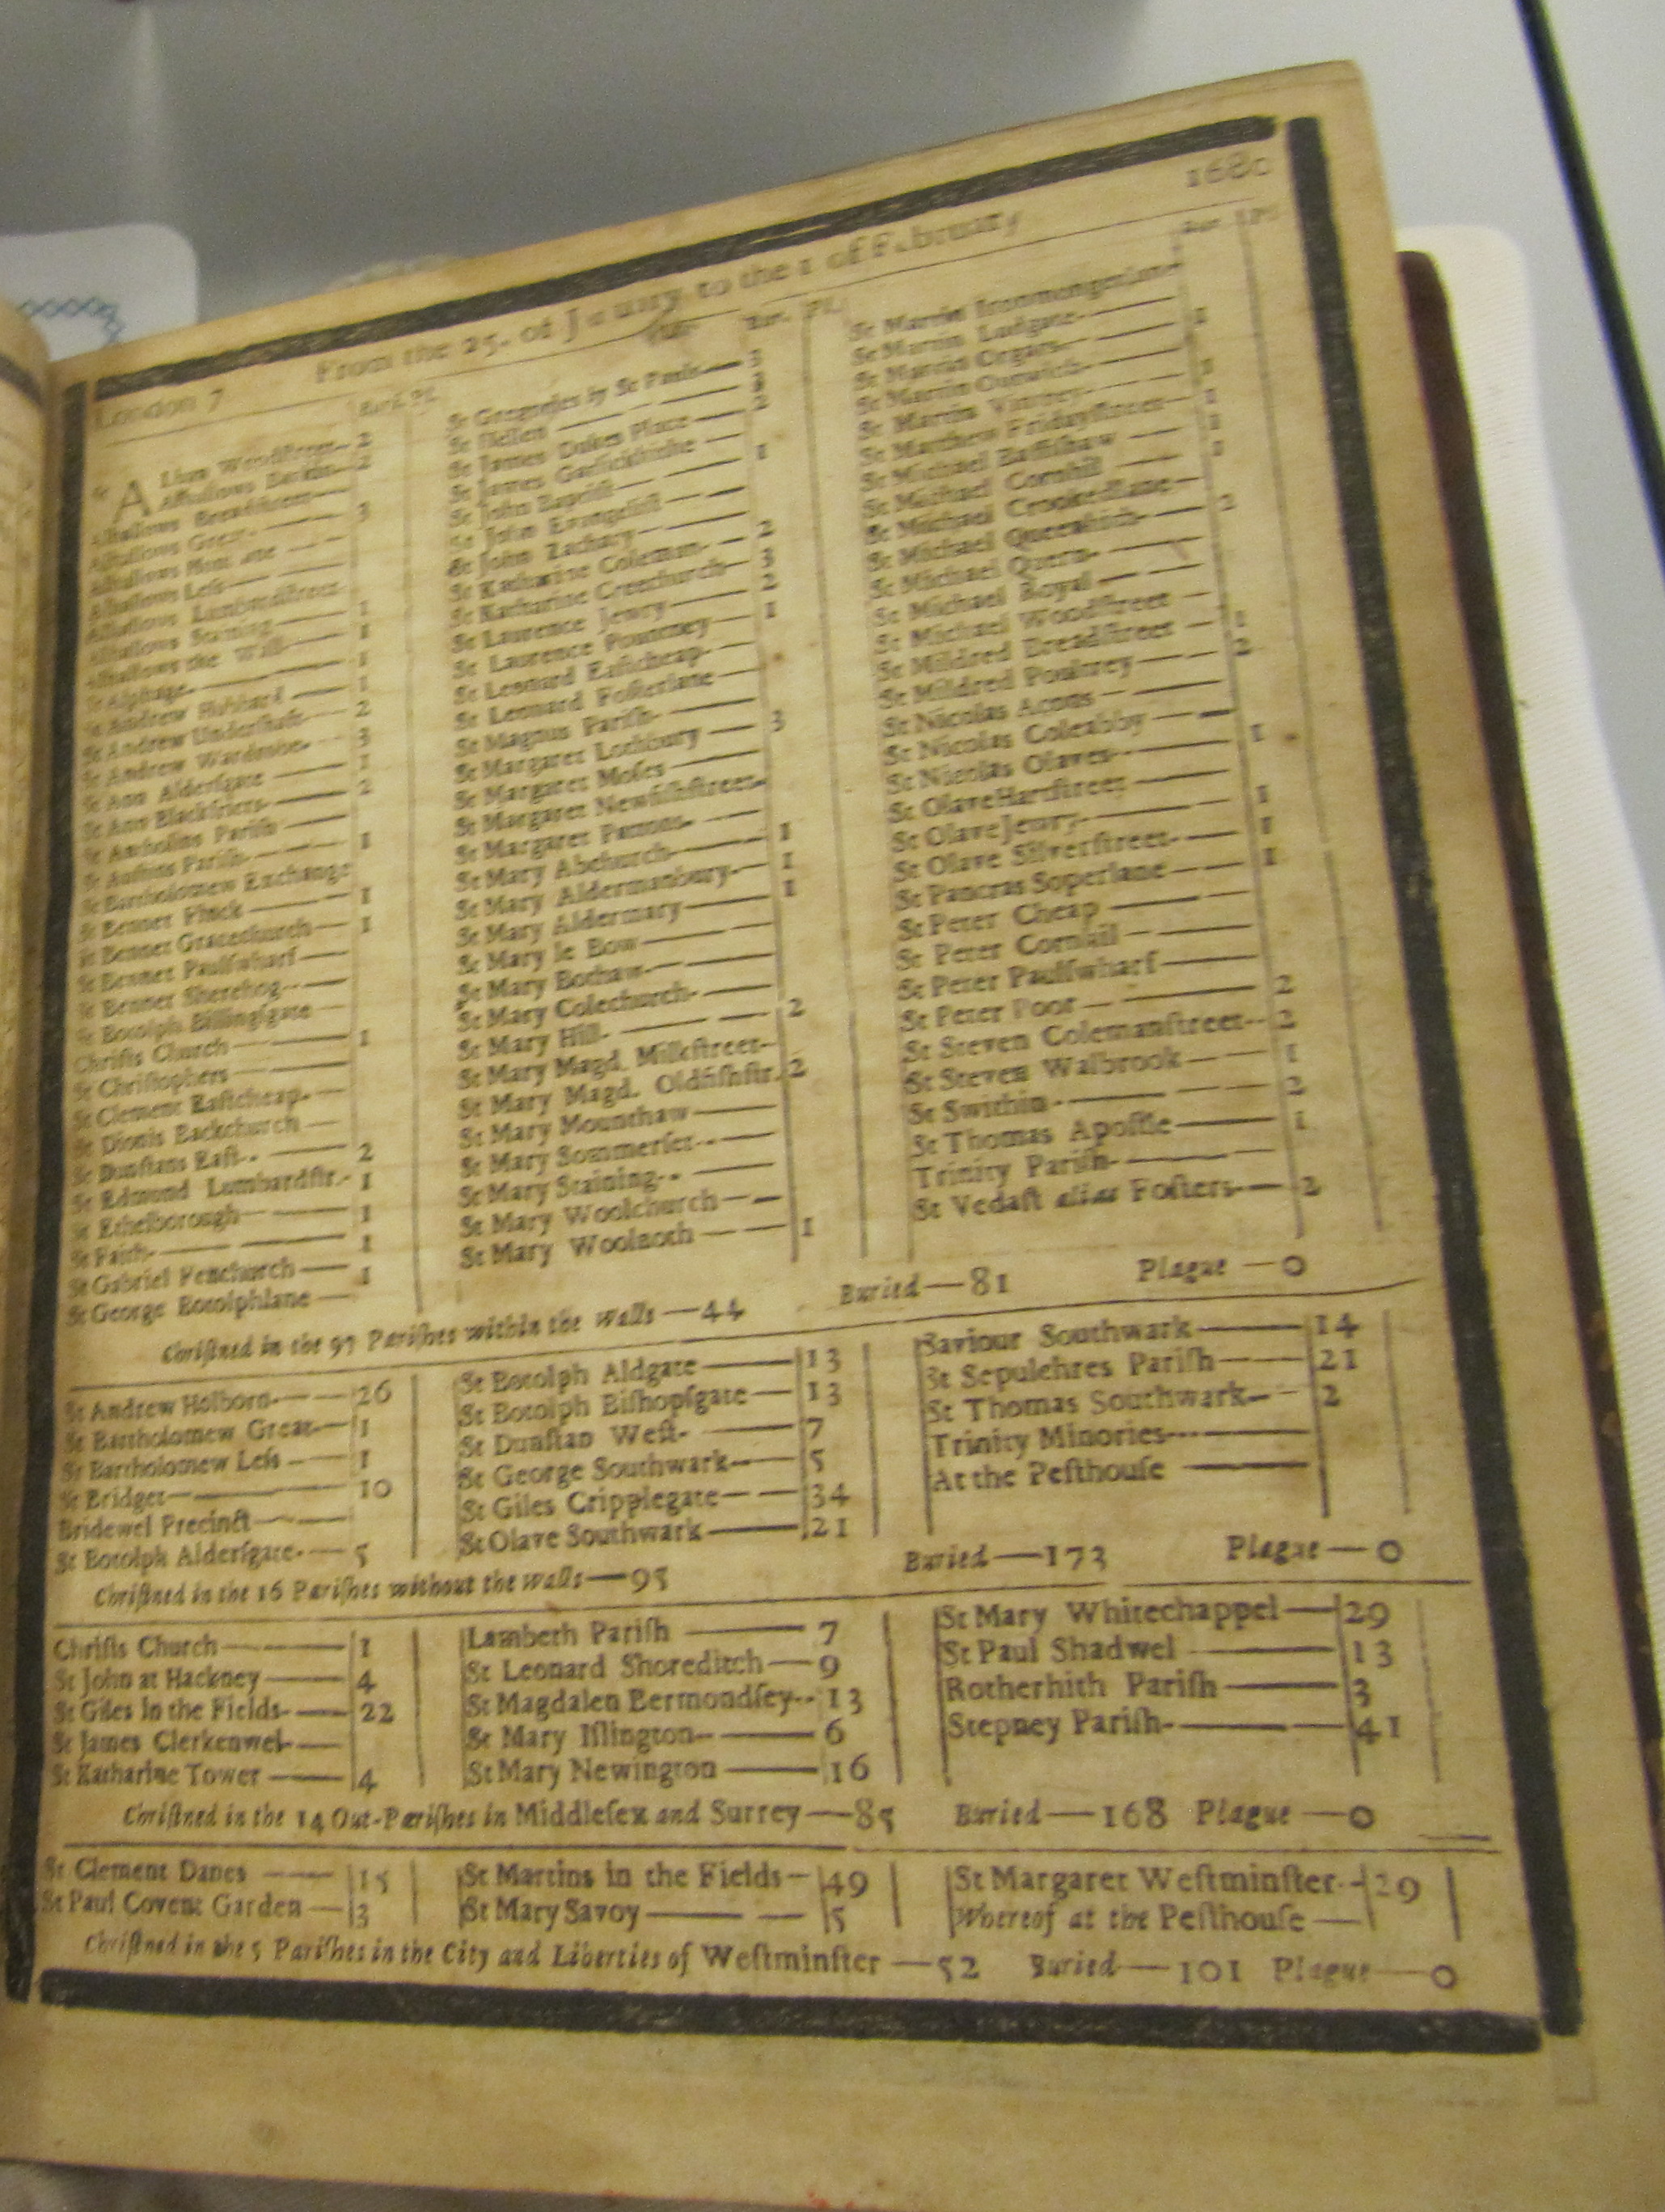 London 7 From the 25. of January to the 1 of February 1680
Bur. Pl.
St ALban Woodstreet 2
Alhallows Barkin 2
Alhallows Breadstreet
Alhallows Great 3
Alhallows Hon lane
Alhallows Less
Alhallows Lumbardstreet
Alhallows Staining 1
Alhallows the Wall 1
St Alphage 1
St Andrew Hubbard 1
St Andrew Undershaft 2
St Andrew Wardrobe 3
St Ann Aldersgate 1
St Ann Blackfriers 2
St Antholins Parish
St Austins Parish 1
St Bartholomew Exchange
St Bennet Fynck 1
St Bennet Gracechurch 1
St Bennet Paulſwharf
St Bennet Sherehog
St Botolph Billingſgate
Chriſts Church 1
St Chriſtophers
St Clement Eaſtcheap
St Dionis Backchurch
St Dunſtans Eaſt 2
St Edmond Lumbardſtr. 1
St Ethelborough 1
St Faith 1
St Gabriel Fenchurch 1
St George Botolphlane
Bur. Pl.
St Gregories by St Pauls 3
St Hellen 3
St James Dukes Place 2
St James Garlickhithe
St John Baptiſt 1
St John Evangeliſt
St John Zachary
St Katharine Coleman 2
St Katharine Creechurch 3
St Laurence Jewry 2
St Laurence Pountney 1
St Leonard Eaſtcheap
St Leonard Foſterlane
St Magnus Pariſh
St Margaret Lothbury 3
St Margaret Moſes
St Margaret Newfiſhſtreet
St Margaret Pattons
St Mary Abchurch 1
St Mary Aldermanbury 1
St Mary Aldermary 1
St Mary le Bow
St Mary Bothaw
St Mary Colechurch
St Mary Hill 2
St Mary Magd. Milkſtreet
St Mary Magd. Oldfiſhſtr. 2
St Mary Mounthaw
St Mary Sommerſet
St Mary Staining
St Mary Woolchurch
St Mary Woolnoth 1
Bur. Pl.
St Martin Ironmongerlane
St Martin Ludgate 1
St Martin Orgars
St Martin Outwich 1
St Martin Vintrey 1
St Matthew Fridayſtreet 1
St Michael Baſſiſhaw 1
St Michael Cornhil
St Michael Crookedlane
St Michael Queenhith 2
St Michael Quern
St Michael Royal
St Michael Woodſtreet
St Mildred Breadſtreet 1
St Mildred Poultrey 2
St Nicolas Acons
St Nicolas Coleabby
St Nicolas Olaves 1
St Olave Hartſtreet
St Olave Jewry 1
St Olave Silverſtreet 1
St Pancras Soperlane 1
St Peter Cheap
St Peter Cornhil
St Peter Paulſwharf
St Peter Poor 2
St Steven Colemanſtreet 2
St Steven Walbrook 1
St Swithin 2
St Thomas Apoſtle 1
Trinity Pariſh
St Vedaſt alias Foſters 2
Chriſtned in the 97 Pariſhes within the walls—44 Buried—81 Plague—0
St Andrew Holborn 26
St Bartholomew Great 1
St Bartholomew Leſs 1
St Bridget 10
Bridewel Precinct
St Botolph Alderſgate 5
St Botolph Aldgate 13
St Botolph Biſhopſgate 13
St Dunſtan Weſt 7
St George Southwark 5
St Giles Cripplegate 34
St Olave Southwark 21
Saviour Southwark 14
St Sepulchres Pariſh 21
St Thomas Southwark 2
Trinity Minories
At the Peſthouſe
Chriſtned in the 16 Pariſhes without the walls—95 Buried—173 Plague—0
Chriſts Church 1
St John at Hackney 4
St Giles in the Fields 22
St James Clerkenwel
St Katharine Tower 4
Lambeth Pariſh 7
St Leonard Shoreditch 9
St Magdalen Bermondſey 13
St Mary Iſlington 6
St Mary Newington 16
St Mary Whitechappel 29
St Paul Shadwel 13
Rotherhith Pariſh 3
Stepney Pariſh 41
Chriſtned in the 14 Out-Pariſhes in Middleſex and Surrey—85 Buried—168 Plague—0
St Clement Danes 15
St Paul Covent Garden 3
St Martins in the Fields 49
St Mary Savoy 5
St Margaret Weſtminſter 29
Whereof at the Peſthouſe
Chriſtned in the 5 Pariſhes in the City and Liberties of Weſtminſter—52 Buried—101 Plague—0